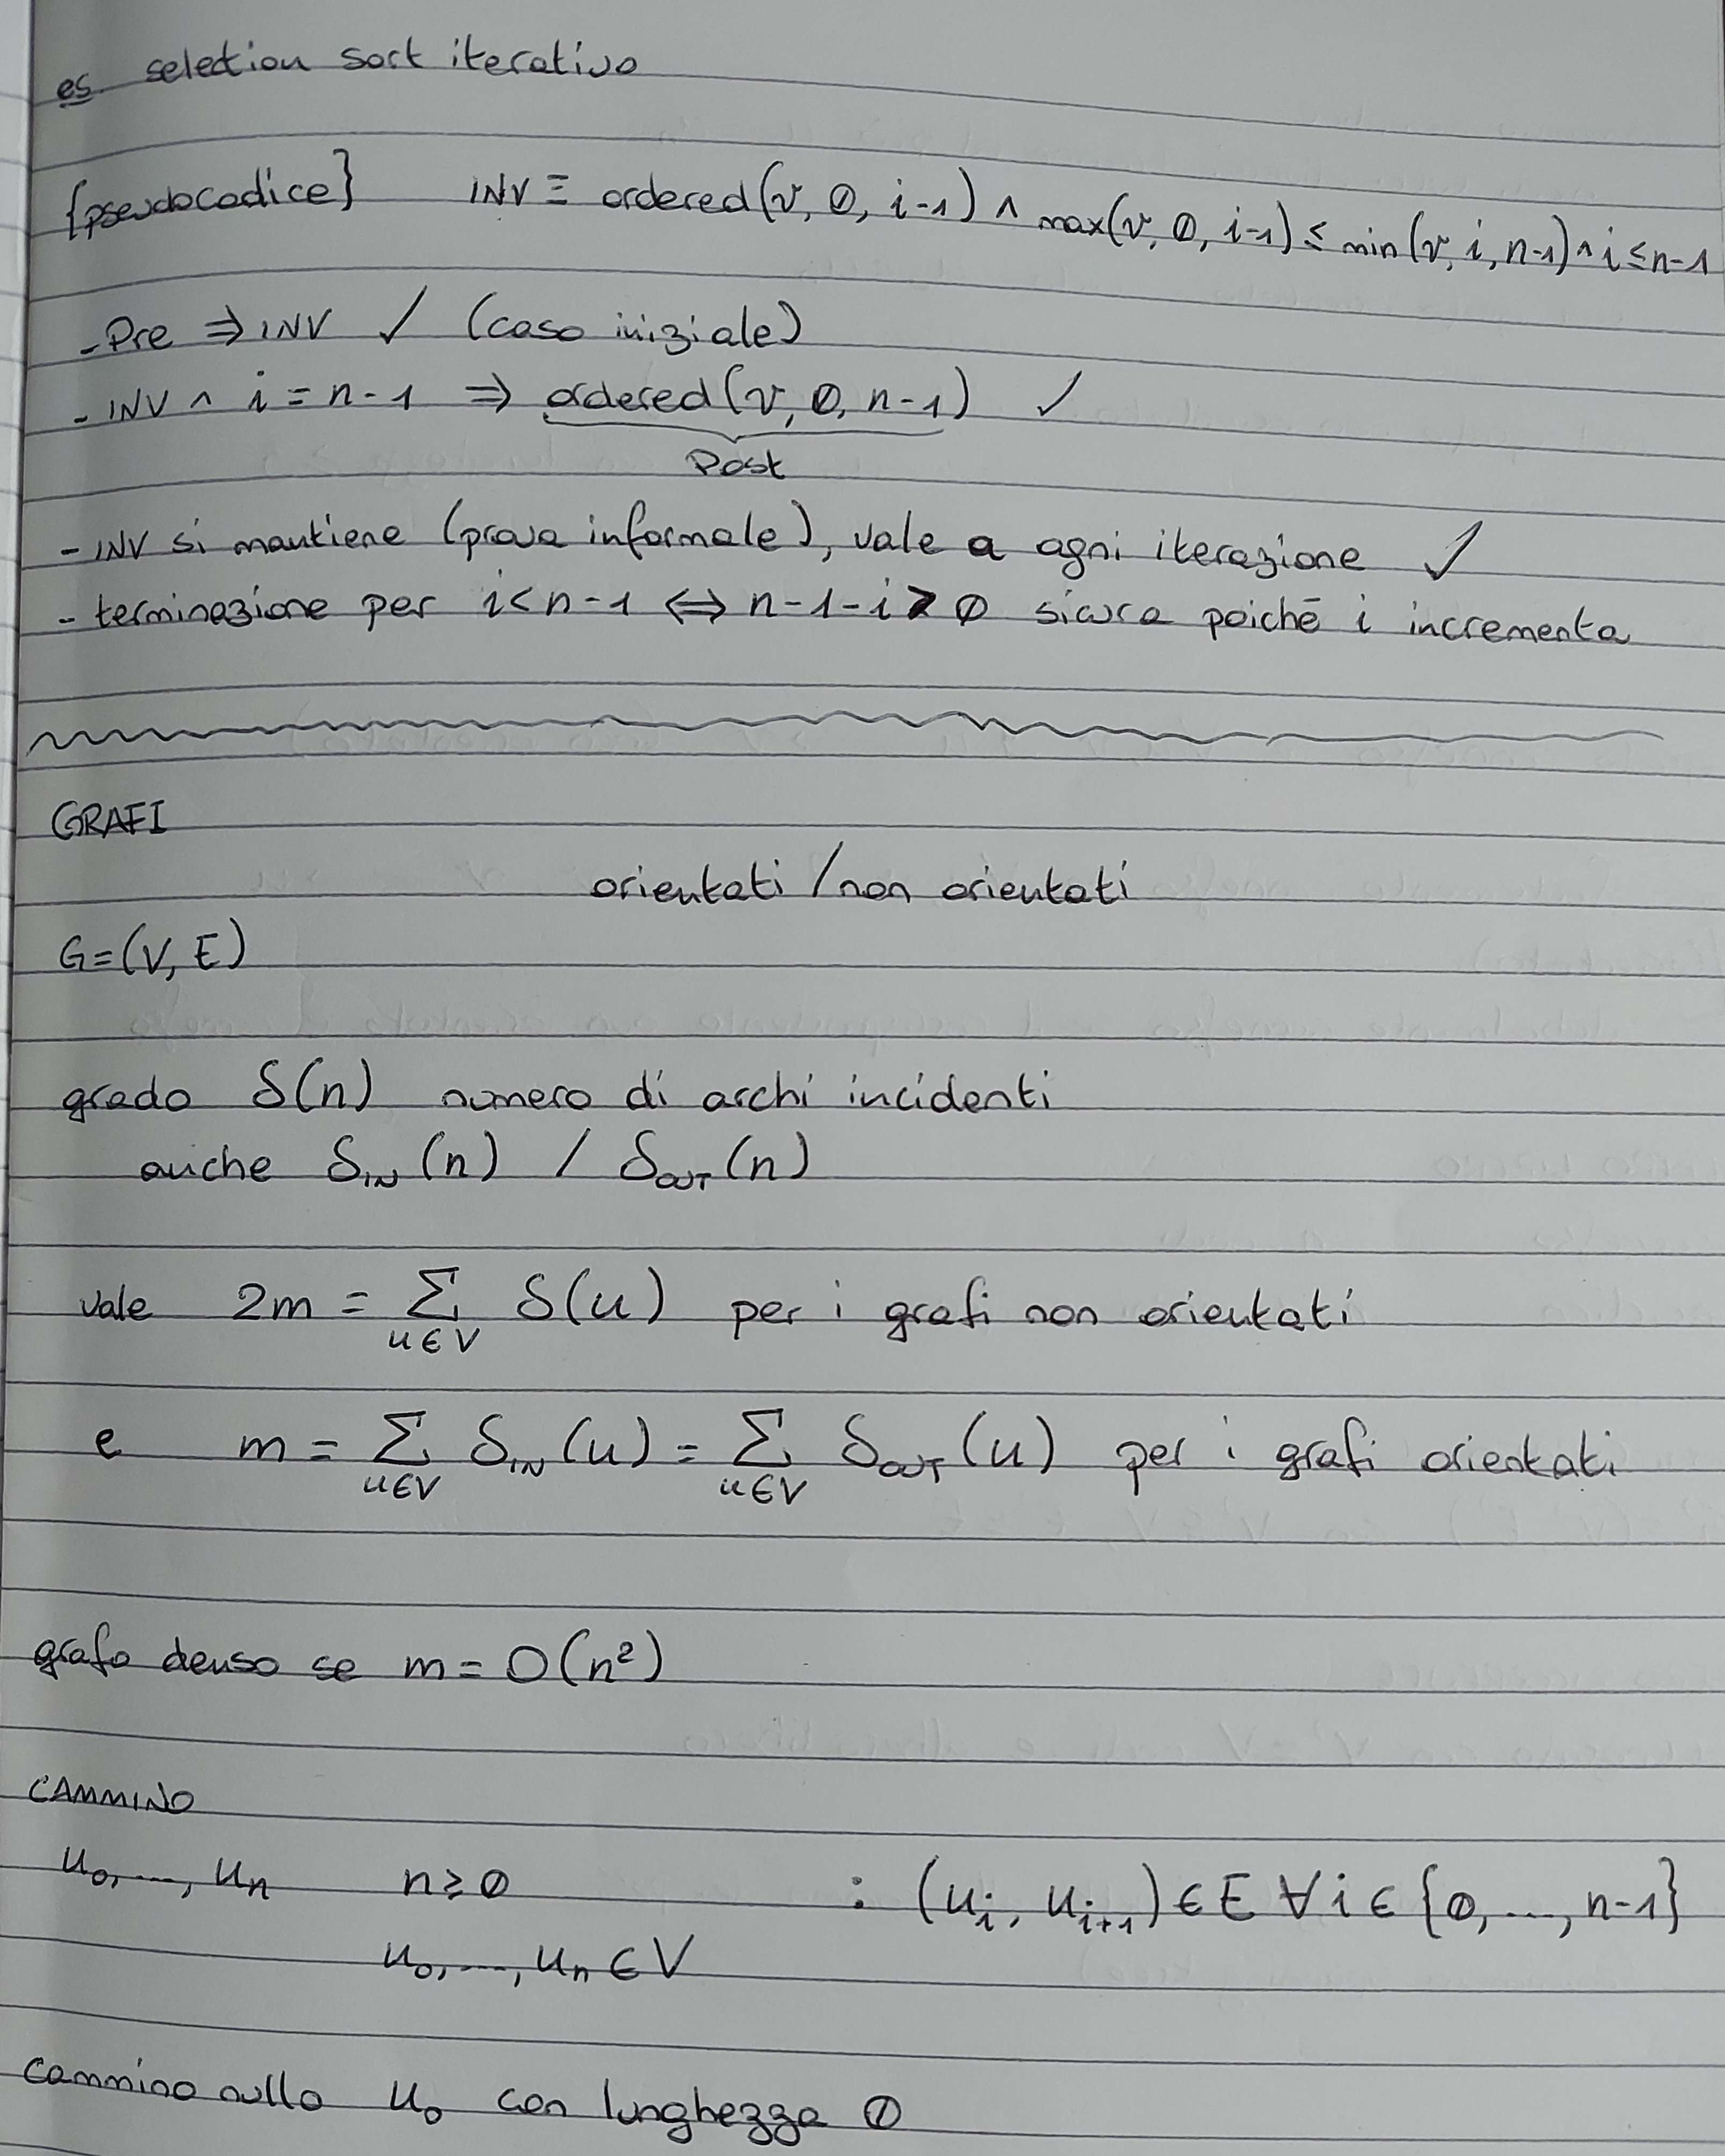 es. selection sort iterativo
{pseudocodice} INV ≡ ordered(v, 0, i-1) ∧ max(v, 0, i-1) ≤ min(v, i, n-1) ∧ i ≤ n-1
- Pre ⇒ INV ✓ (caso iniziale)
- INV ∧ i = n-1 ⇒ ordered(v, 0, n-1) ✓
Post
- INV si mantiene (prova informale), vale a ogni iterazione ✓
- terminazione per i < n-1 ⇔ n-1-i > 0 sicura poiché i incrementa
GRAFI
orientati / non orientati
G = (V, E)
grado δ(n) numero di archi incidenti
anche δ_IN(n) / δ_OUT(n)
vale 2m = Σ_{u∈V} δ(u) per i grafi non orientati
e m = Σ_{u∈V} δ_IN(u) = Σ_{u∈V} δ_OUT(u) per i grafi orientati
grafo denso se m = O(n²)
CAMMINO
u₀, ..., uₙ n ≥ 0 : (uᵢ, uᵢ₊₁) ∈ E ∀ i ∈ {0, ..., n-1}
u₀, ..., uₙ ∈ V
cammino nullo u₀ con lunghezza 0